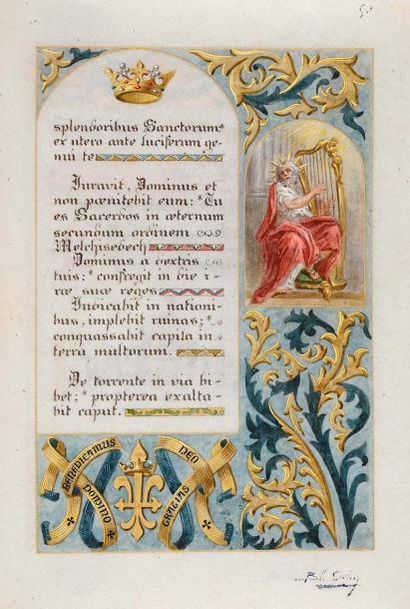 splendoribus Sanctorum:
ex utero ante luciferum ge-
nui te
Juravit Dominus et
non pœnitebit eum: * Tu
es Sacerdos in æternum
secundum ordinem
Melchisedech
Dominus a dextris
tuis: * confregit in die i-
ræ suæ reges
Judicabit in nationi-
bus, implebit ruinas; *
conquassabit capita in
terra multorum.
De torrente in via bi-
bet; * propterea exalta-
bit caput.
BENEDICAMUS
DOMINO
DEO
GRATIAS